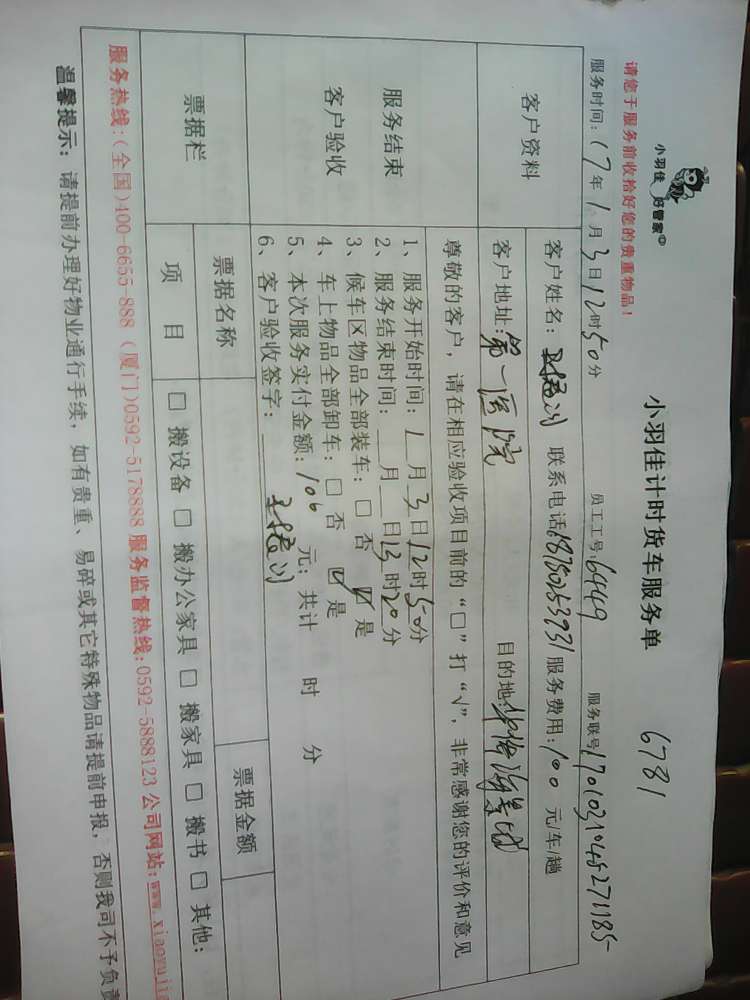 小羽佳 好管家
小羽佳计时货车服务单 6781
请您于服务前收拾好您的贵重物品！
服务时间：17年1月3日12时50分 员工工号：6449 服务联号
客户资料
客户姓名： 联系电话 服务费用：100 元/车/趟
客户地址：第一医院 目的地：
尊敬的客户，请在相应验收项目前的“□”打“√”，非常感谢您的评价和意见
服务结束
客户验收
1、服务开始时间：1月3日12时50分
2、服务结束时间： 月 日13时20分
3、候车区物品全部装车：□ 否 ☑ 是
4、车上物品全部卸车：□ 否 ☑ 是
5、本次服务实付金额：106 元；共计 时 分
6、客户验收签字：
票据栏
票据名称 票据金额
项 目 □ 搬设备 □ 搬办公家具 □ 搬家具 □ 搬书 □ 其他：
服务热线：(全国)400-6655-888 (厦门)0592-5178888 服务监督热线：0592-5888123 公司网站：www.xiaoyujia
温馨提示：请提前办理好物业通行手续，如有贵重、易碎或其它特殊物品请提前申报，否则我司不予负责